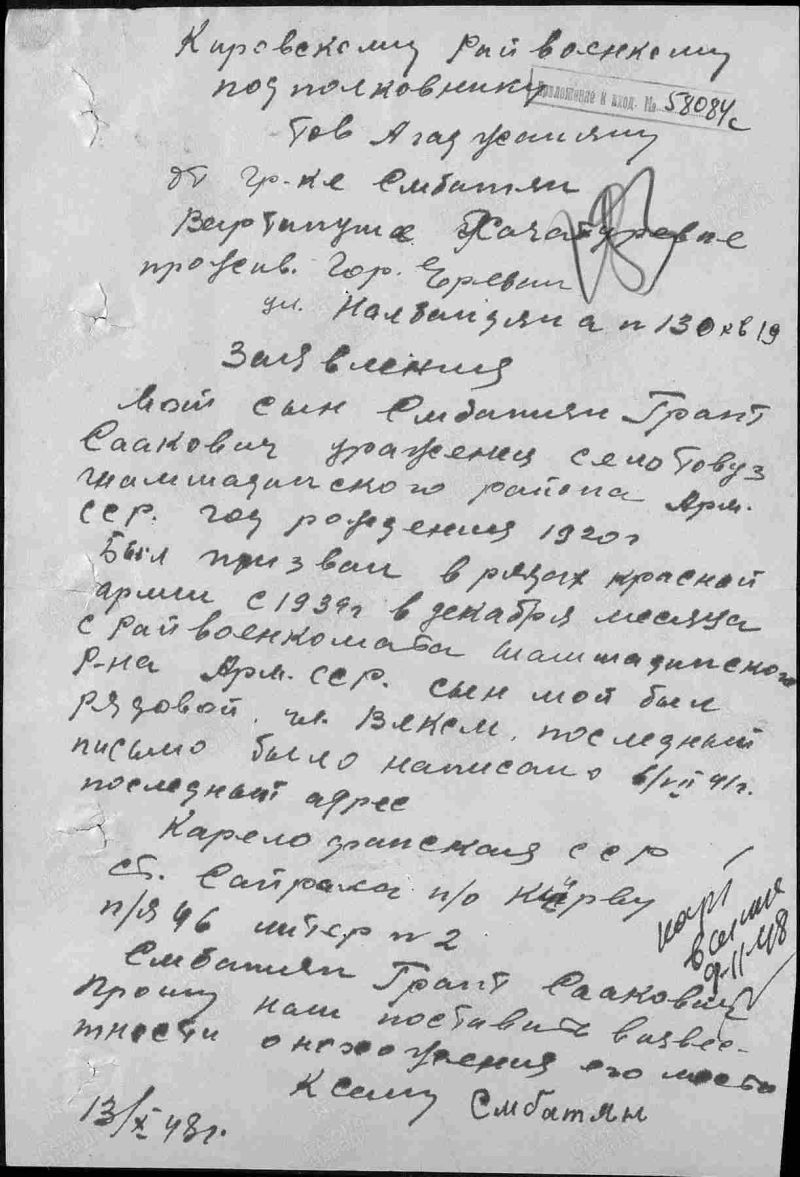 Кировскому Райвоенкому
подполковнику
Приложение к вход. № 58084с
тов Агаджаняну
от гр-ке Смбатян
Вартануше Хачатуревне
прожив. гор. Ереван
ул. Налбандяна n 130 кв 19
Заявления
Мой сын Смбатян Грант
Саакович уражения село Товуз
шамшадинского района Арм.
ССР. год рождения 1920г
Был призван в рядах красной
армии с 1939г в декабря месяца
с Райвоенкомата шамшадинского
Р-на Арм. ССР. сын мой был
рядовой, чл. ВЛКСМ, последный
письмо было написано 6/VII 41г.
последный адрес
Карело финская ССР
ст. Сайрала п/о Кярву
п/я 46 литер n 2
карт
взята
9-11-48
Смбатян Грант Саакович
Прошу наш поставить в извес-
тности о нахождения его место
К сему Смбатян
13/X 48г.